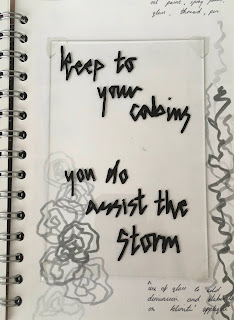 oil paint, spray paint,
glass, thread, pen
keep to
your
cabins
you do
assist the
storm
use of glass to add
dimension and
on